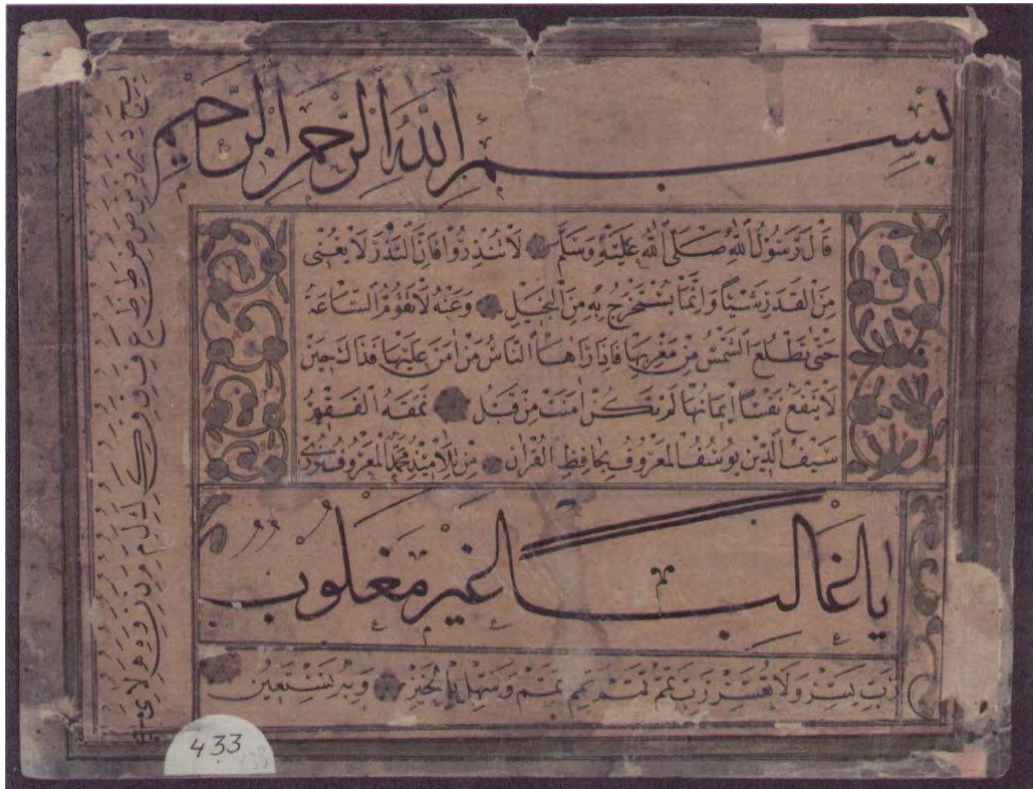 بسم الله الرحمن الرحيم
قال رسول الله صلى الله عليه وسلم لا تنذروا فان النذر لا يغنى
من القدر شيئا وانما يستخرج به من البخيل وعنه لا تقوم الساعة
حتى تطلع الشمس من مغربها فاذا راها الناس من امن عليها فذاك حين
لا ينفع نفسا ايمانها لم تكن امنت من قبل نمقه الفقير
سيف الدين يوسف المعروف بحافظ القران من تلاميذ محمد المعروف نورى
يا غالبا غير مغلوب
رب يسر ولا تعسر رب تمم وسهل بالخير وبه نستعين
433